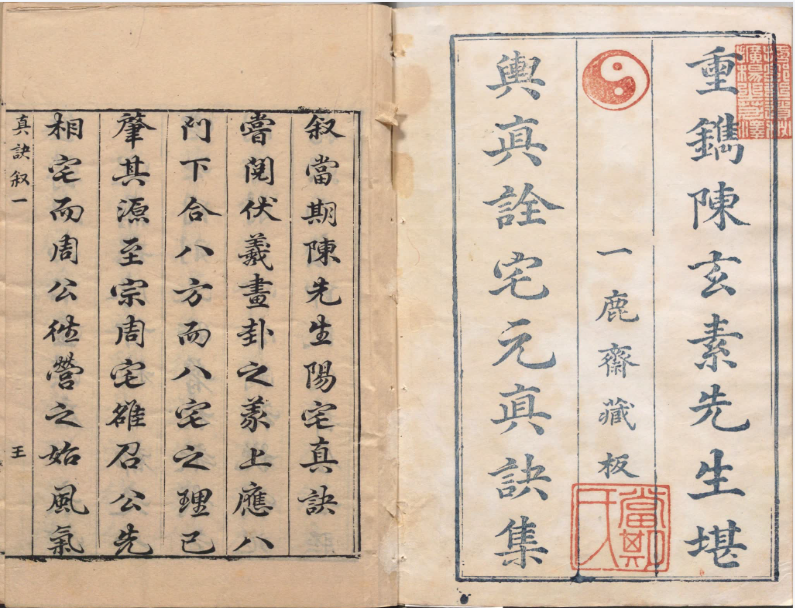 重鐫陳玄素先生堪
輿真詮宅元真訣集
一鹿齋藏板
當期
氏人
叙當期陳先生陽宅真訣
嘗閱伏羲畫卦之彖上應八
門下合八方而八宅之理已
肇其源至宗周宅雒召公先
相宅而周公徃營之始風氣
真訣叙一
王